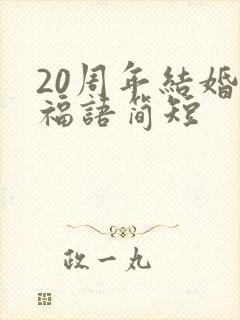 20周年結婚
福語简短
政一丸